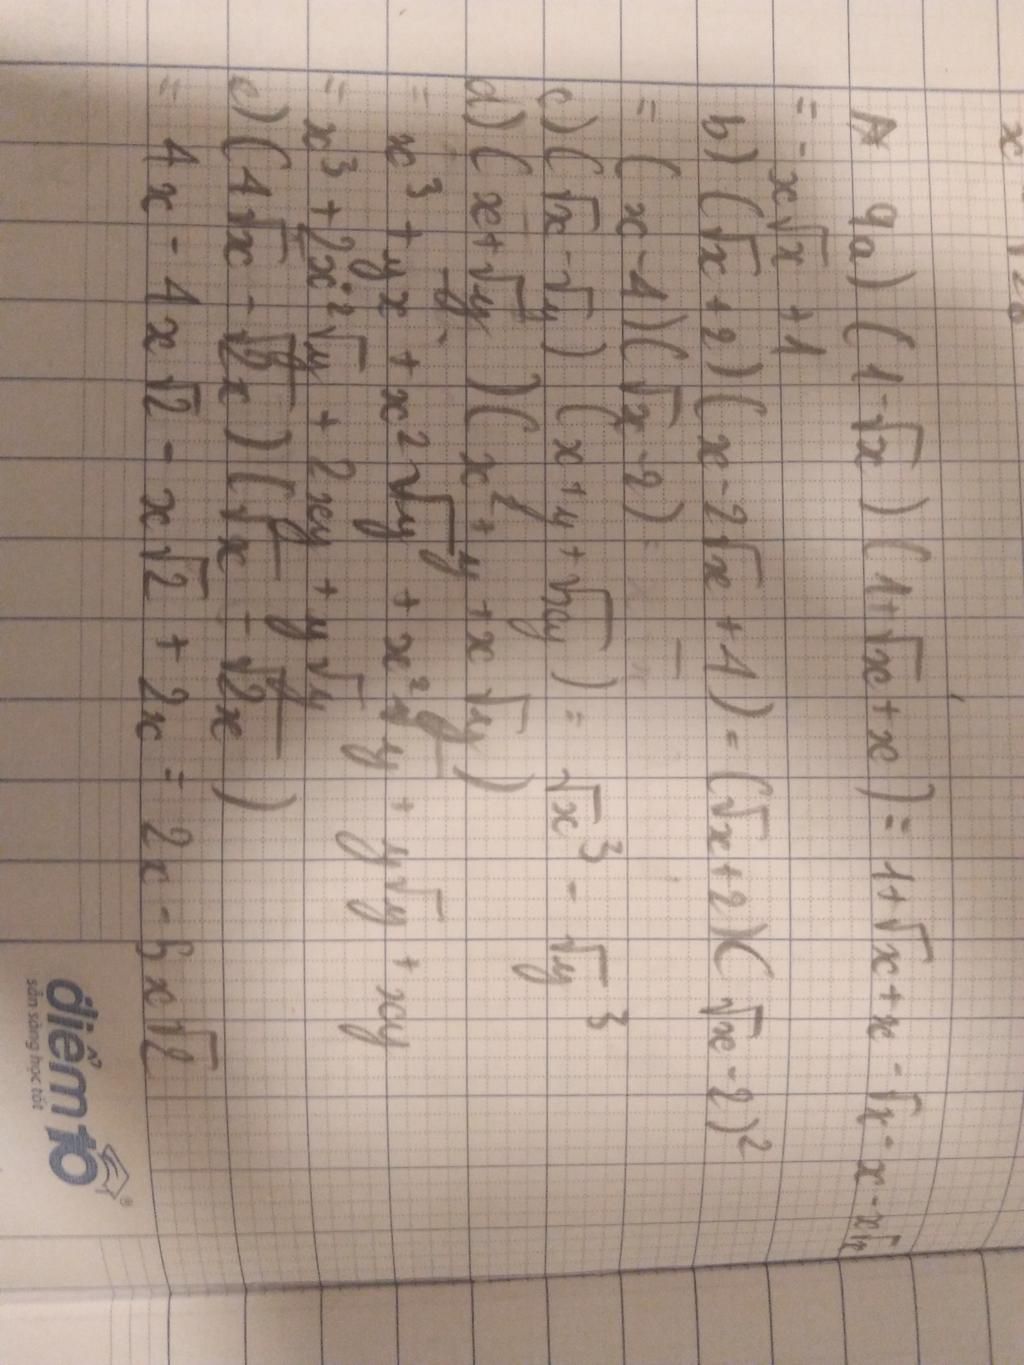 9a) (1-√x)(1+√x+x) = 1+√x+x-√x-x-x√x
= -x√x +1
b) (√x+2)(x-2√x+4) = (√x+2)(√x-2)²
= (x-4)(√x-2)
c) (√x-√y) (x+y+√xy) = √x³ - √y³
d) (x+√y)(x²+y+x√y)
= x³ + yx + x²√y + x²√y + y√y + xy
= x³ + 2x²√y + 2xy + y√y
e) (4√x - √2x)(√x - √2x)
= 4x - 4x√2 - x√2 + 2x = 2x - 5x√2
điểm 10
sẵn sàng học tốt